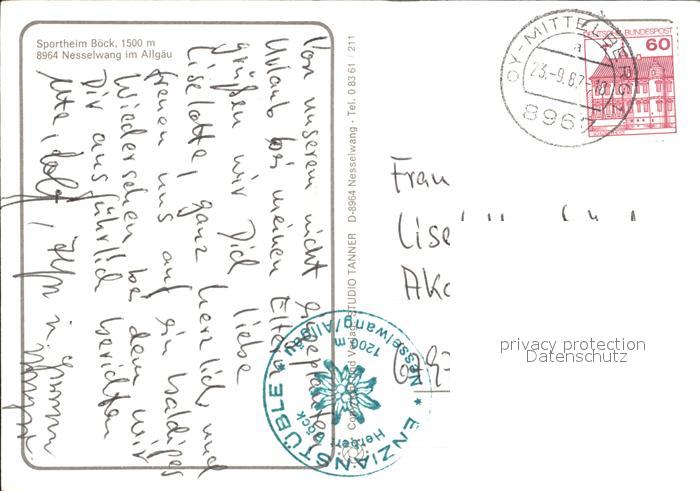 Sportheim Böck, 1500 m
8964 Nesselwang im Allgäu
Von unserem nicht geplanten
Urlaub bei meinen Eltern
grüßen wir Dich liebe
Liselotte, ganz herzlich und
freuen uns auf ein baldiges
Wiedersehen bei dem wir
Dir ausführlich berichten
STUDIO TANNER D-8964 Nesselwang - Tel. 0 83 61 / 211
OY-MITTELBERG 2
a
23.-9.87.-18
8967
DEUTSCHE BUNDESPOST
60
Frau
Lise
privacy protection
Datenschutz
* ENZIANSTÜBLE *
Herbert Böck
1200 m
Nesselwang/Allgäu